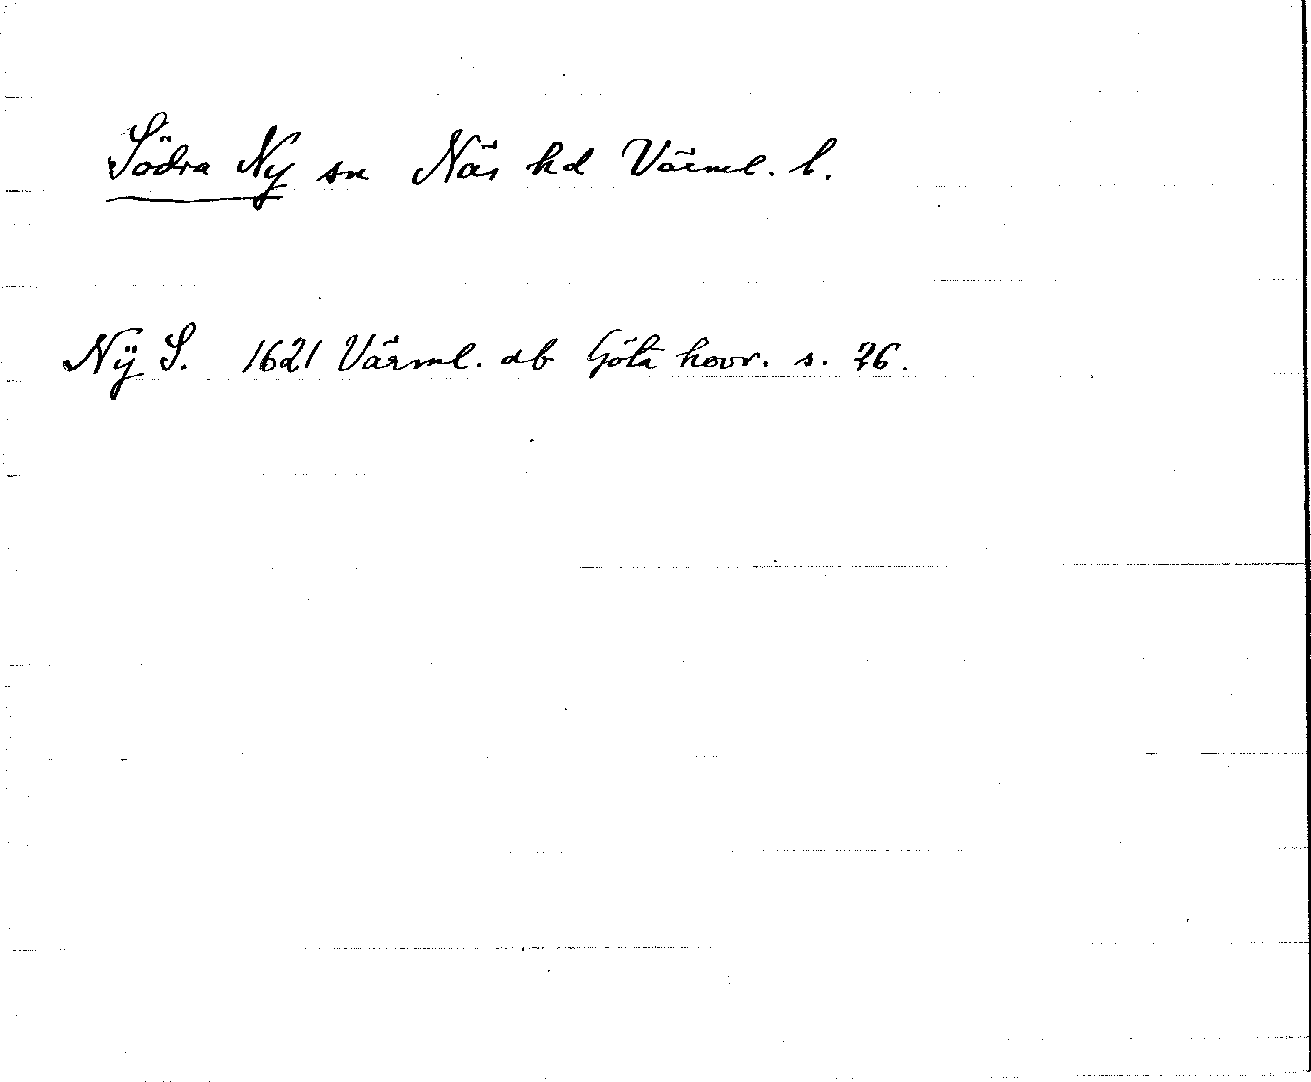 Södra Ny sn Näs hd Värml. l.
Nÿ S. 1621 Värml. db Göta hovr. s. 76.